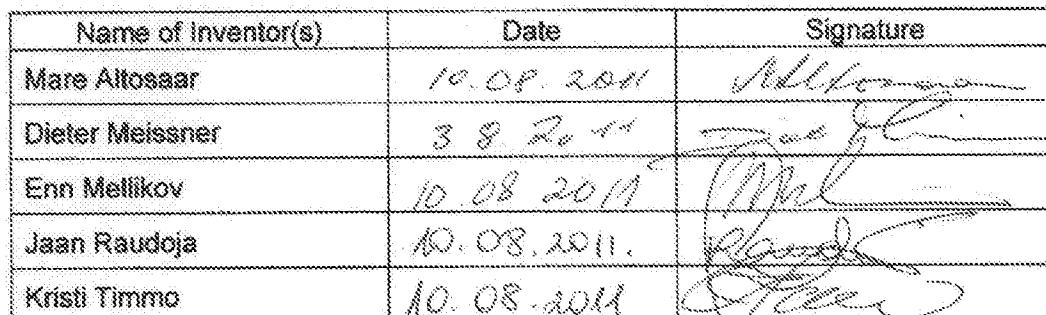 Name of Inventor(s) Date Signature
Mare Altosaar 10.08.2011
Dieter Meissner 3 8 2011
Enn Mellikov 10.08 2011
Jaan Raudoja 10.08.2011.
Kristi Timmo 10.08.2011